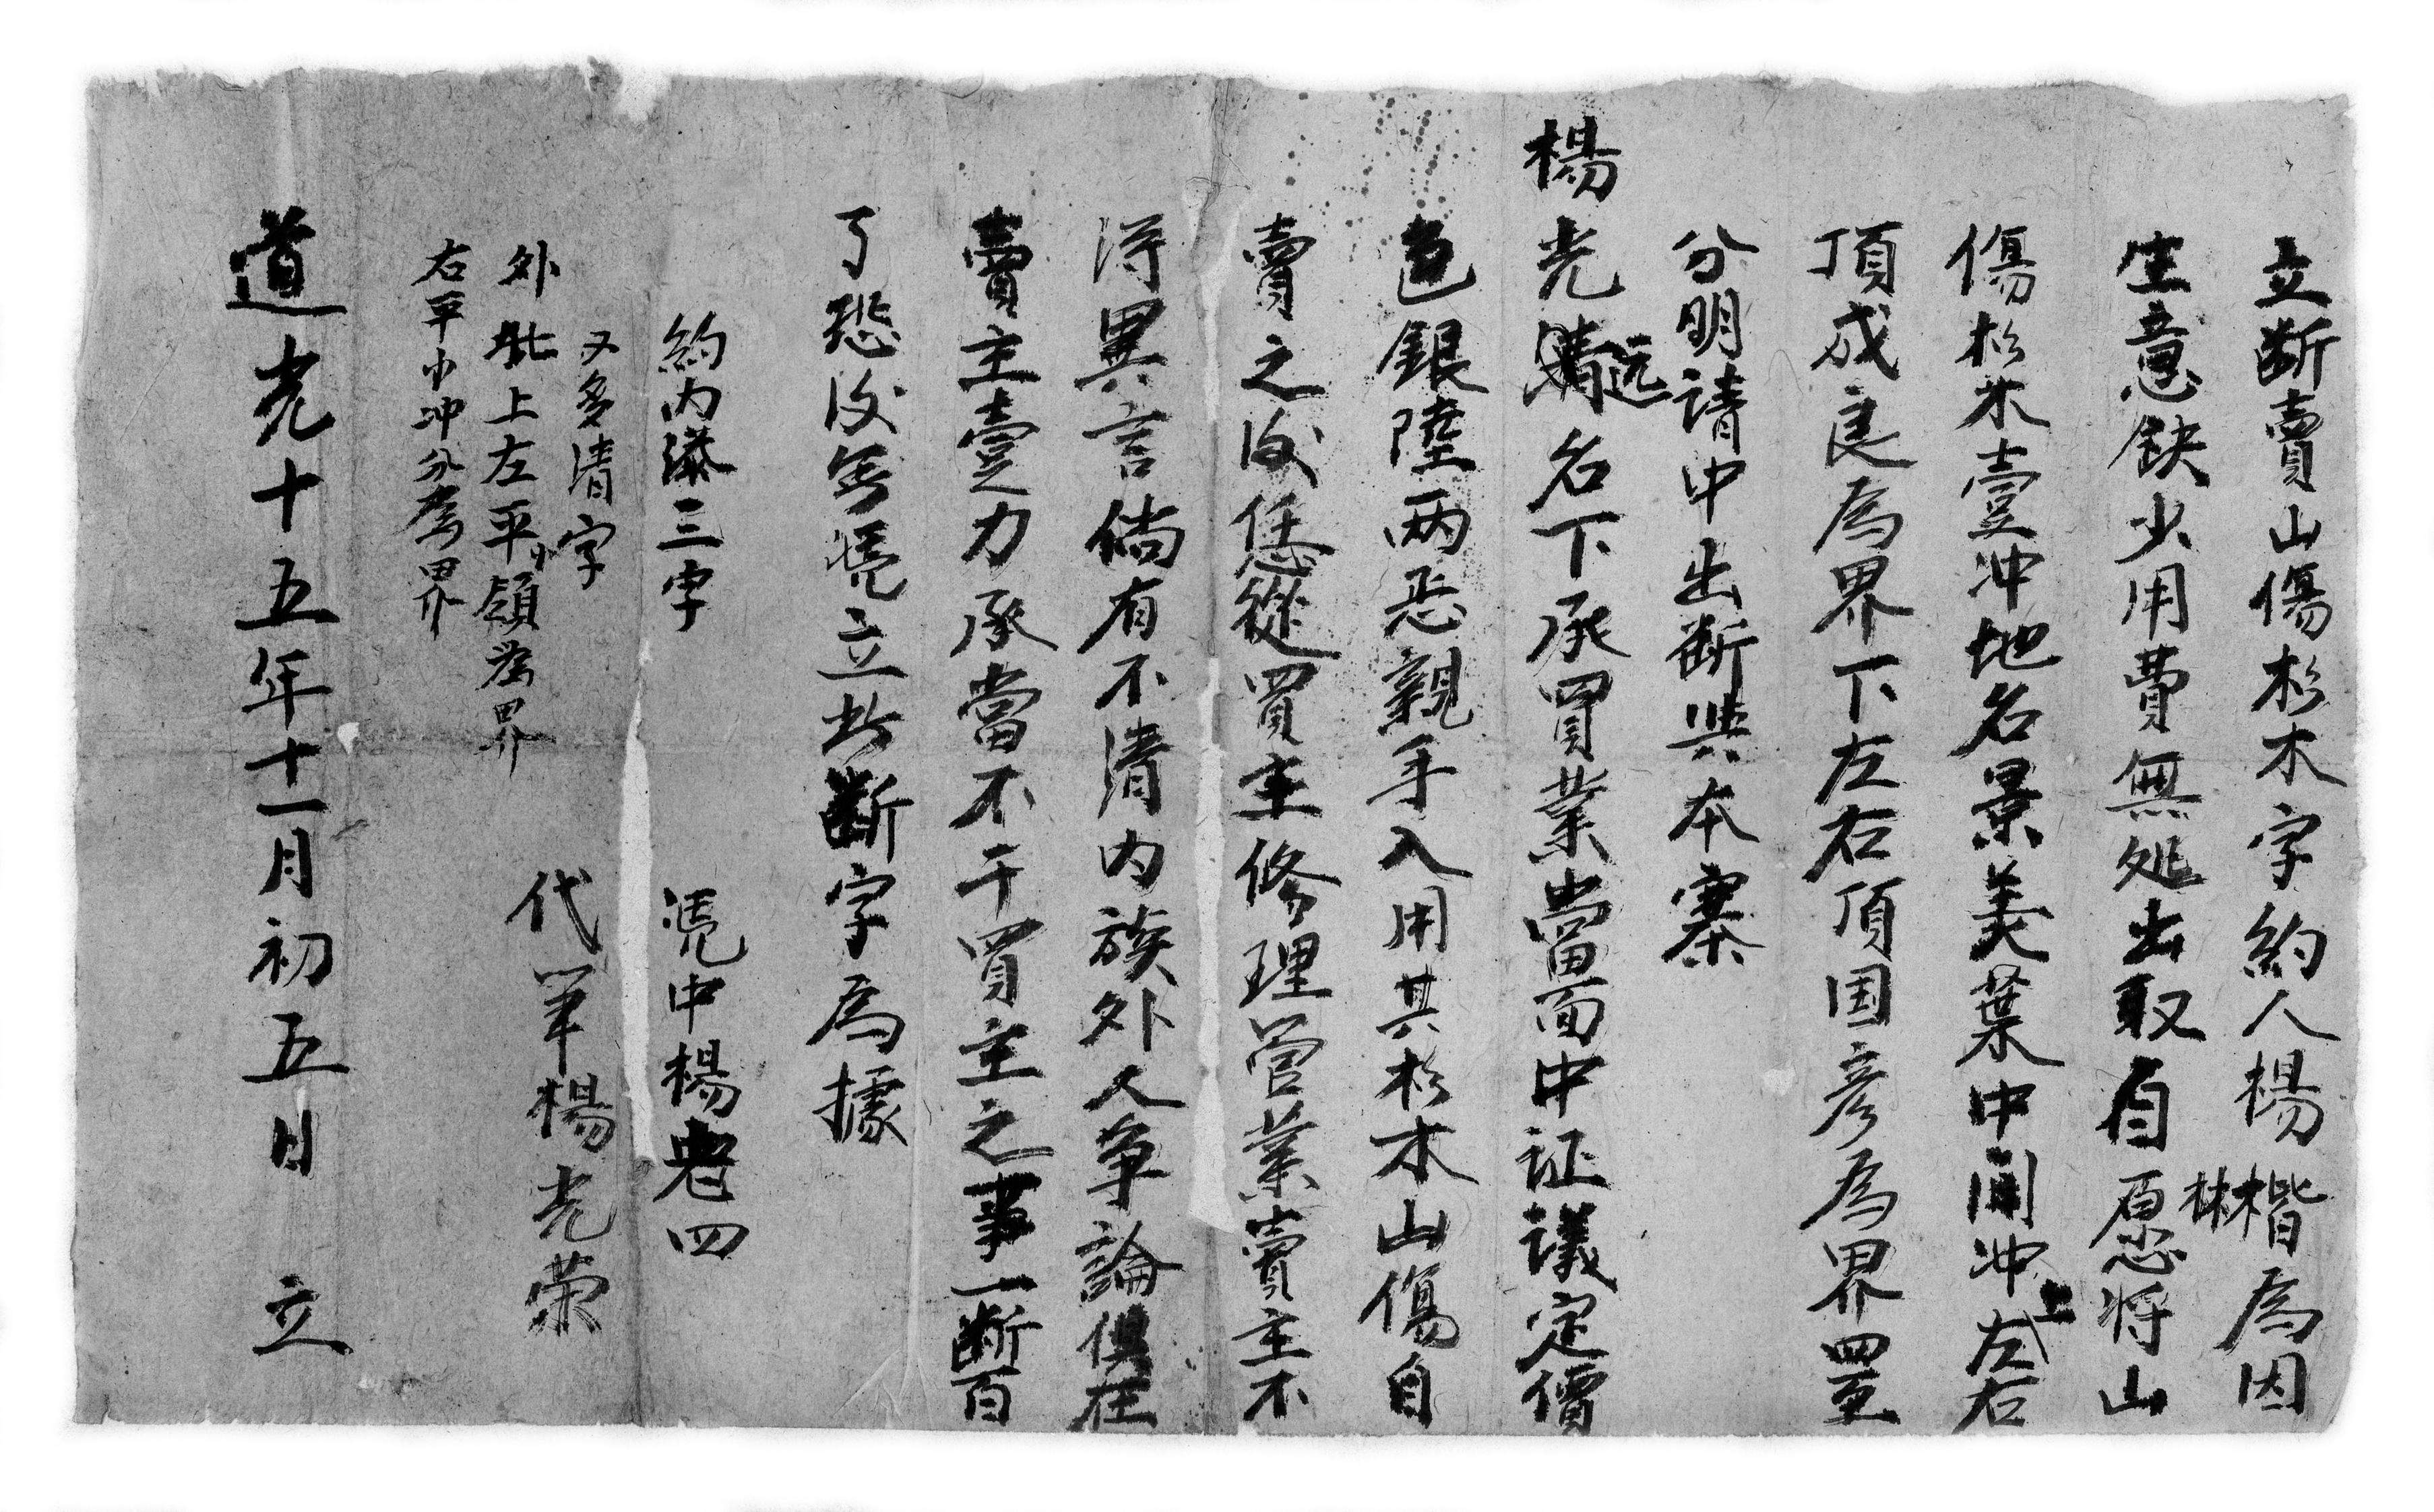 立断賣山傷杉木字約人楊楷楙為因
生意缺少用費無処出取自愿将山
傷杉木壹冲地名景美葉中间冲上左右
頂成良為界下左右頂国彦為界四至
分明請中出断與本寨
楊光遠名下承買業當面中证議定價
色銀陸两恶親手入用其杉木山傷自
賣之後恁從買主修理管業賣主不
得異言倘有不清内族外人争論俱在
賣主壹力承當不干買主之事一断百
了恐後無憑立此断字為據
約内添三字
憑中楊老四
又多清字
外批上左平小嶺為界
右平小冲分為界
代筆楊光荣
道光十五年十一月初五日立